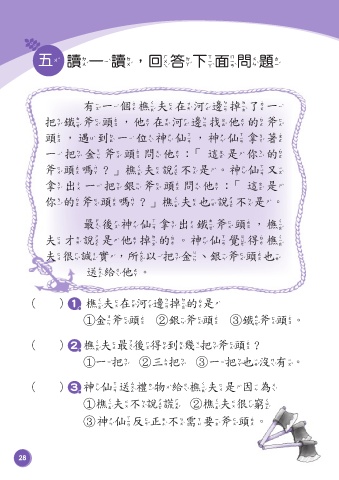 五 讀一讀，回答下面問題
有一個樵夫在河邊掉了一
把鐵斧頭，他在河邊找他的斧
頭，遇到一位神仙，神仙拿著
一把金斧頭問他：「這是你的
斧頭嗎？」樵夫說不是。神仙又
拿出一把銀斧頭問他：「這是
你的斧頭嗎？」樵夫也說不是。
最後神仙拿出鐵斧頭，樵
夫才說是他掉的。神仙覺得樵
夫很誠實，所以把金、銀斧頭也
送給他。
（ ）1 樵夫在河邊掉的是
①金斧頭 ②銀斧頭 ③鐵斧頭。
（ ）2 樵夫最後得到幾把斧頭？
①一把 ②三把 ③一把也沒有。
（ ）3 神仙送禮物給樵夫是因為
①樵夫不說謊 ②樵夫很窮
③神仙反正不需要斧頭。
28